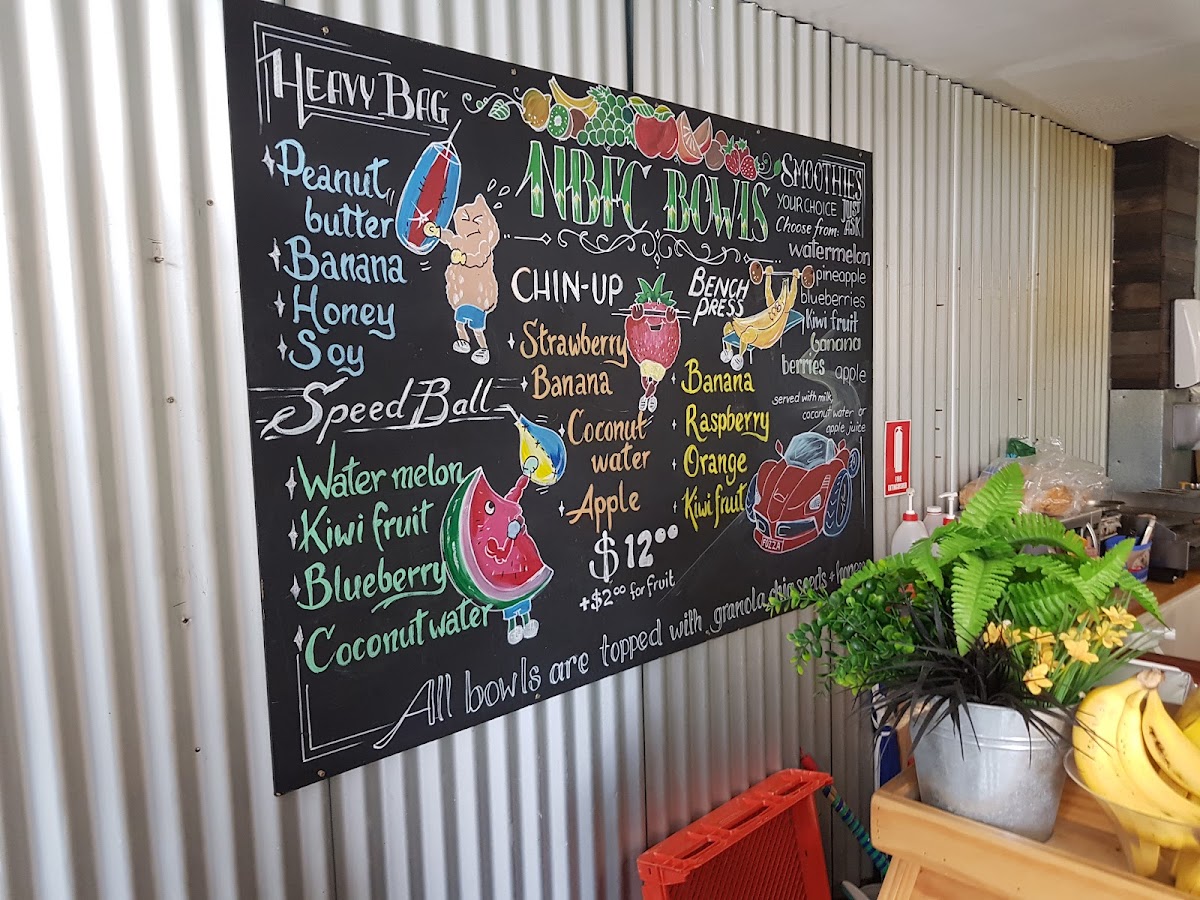 HEAVY BAG
Peanut
butter
Banana
Honey
Soy
Speed Ball
Water melon
Kiwi fruit
Blueberry
Coconut water
NBFC BOWLS
CHIN-UP
Strawberry
Banana
Coconut
water
Apple
BENCH
PRESS
Banana
Raspberry
Orange
Kiwi fruit
$12.00
+$2.00 for fruit
SMOOTHIES
YOUR CHOICE JUST
ASK
Choose from:
watermelon
pineapple
blueberries
Kiwi fruit
banana
berries apple
served with milk,
coconut water or
apple juice
All bowls are topped with granola, chia seeds +
FIRE
EXTINGUISHER